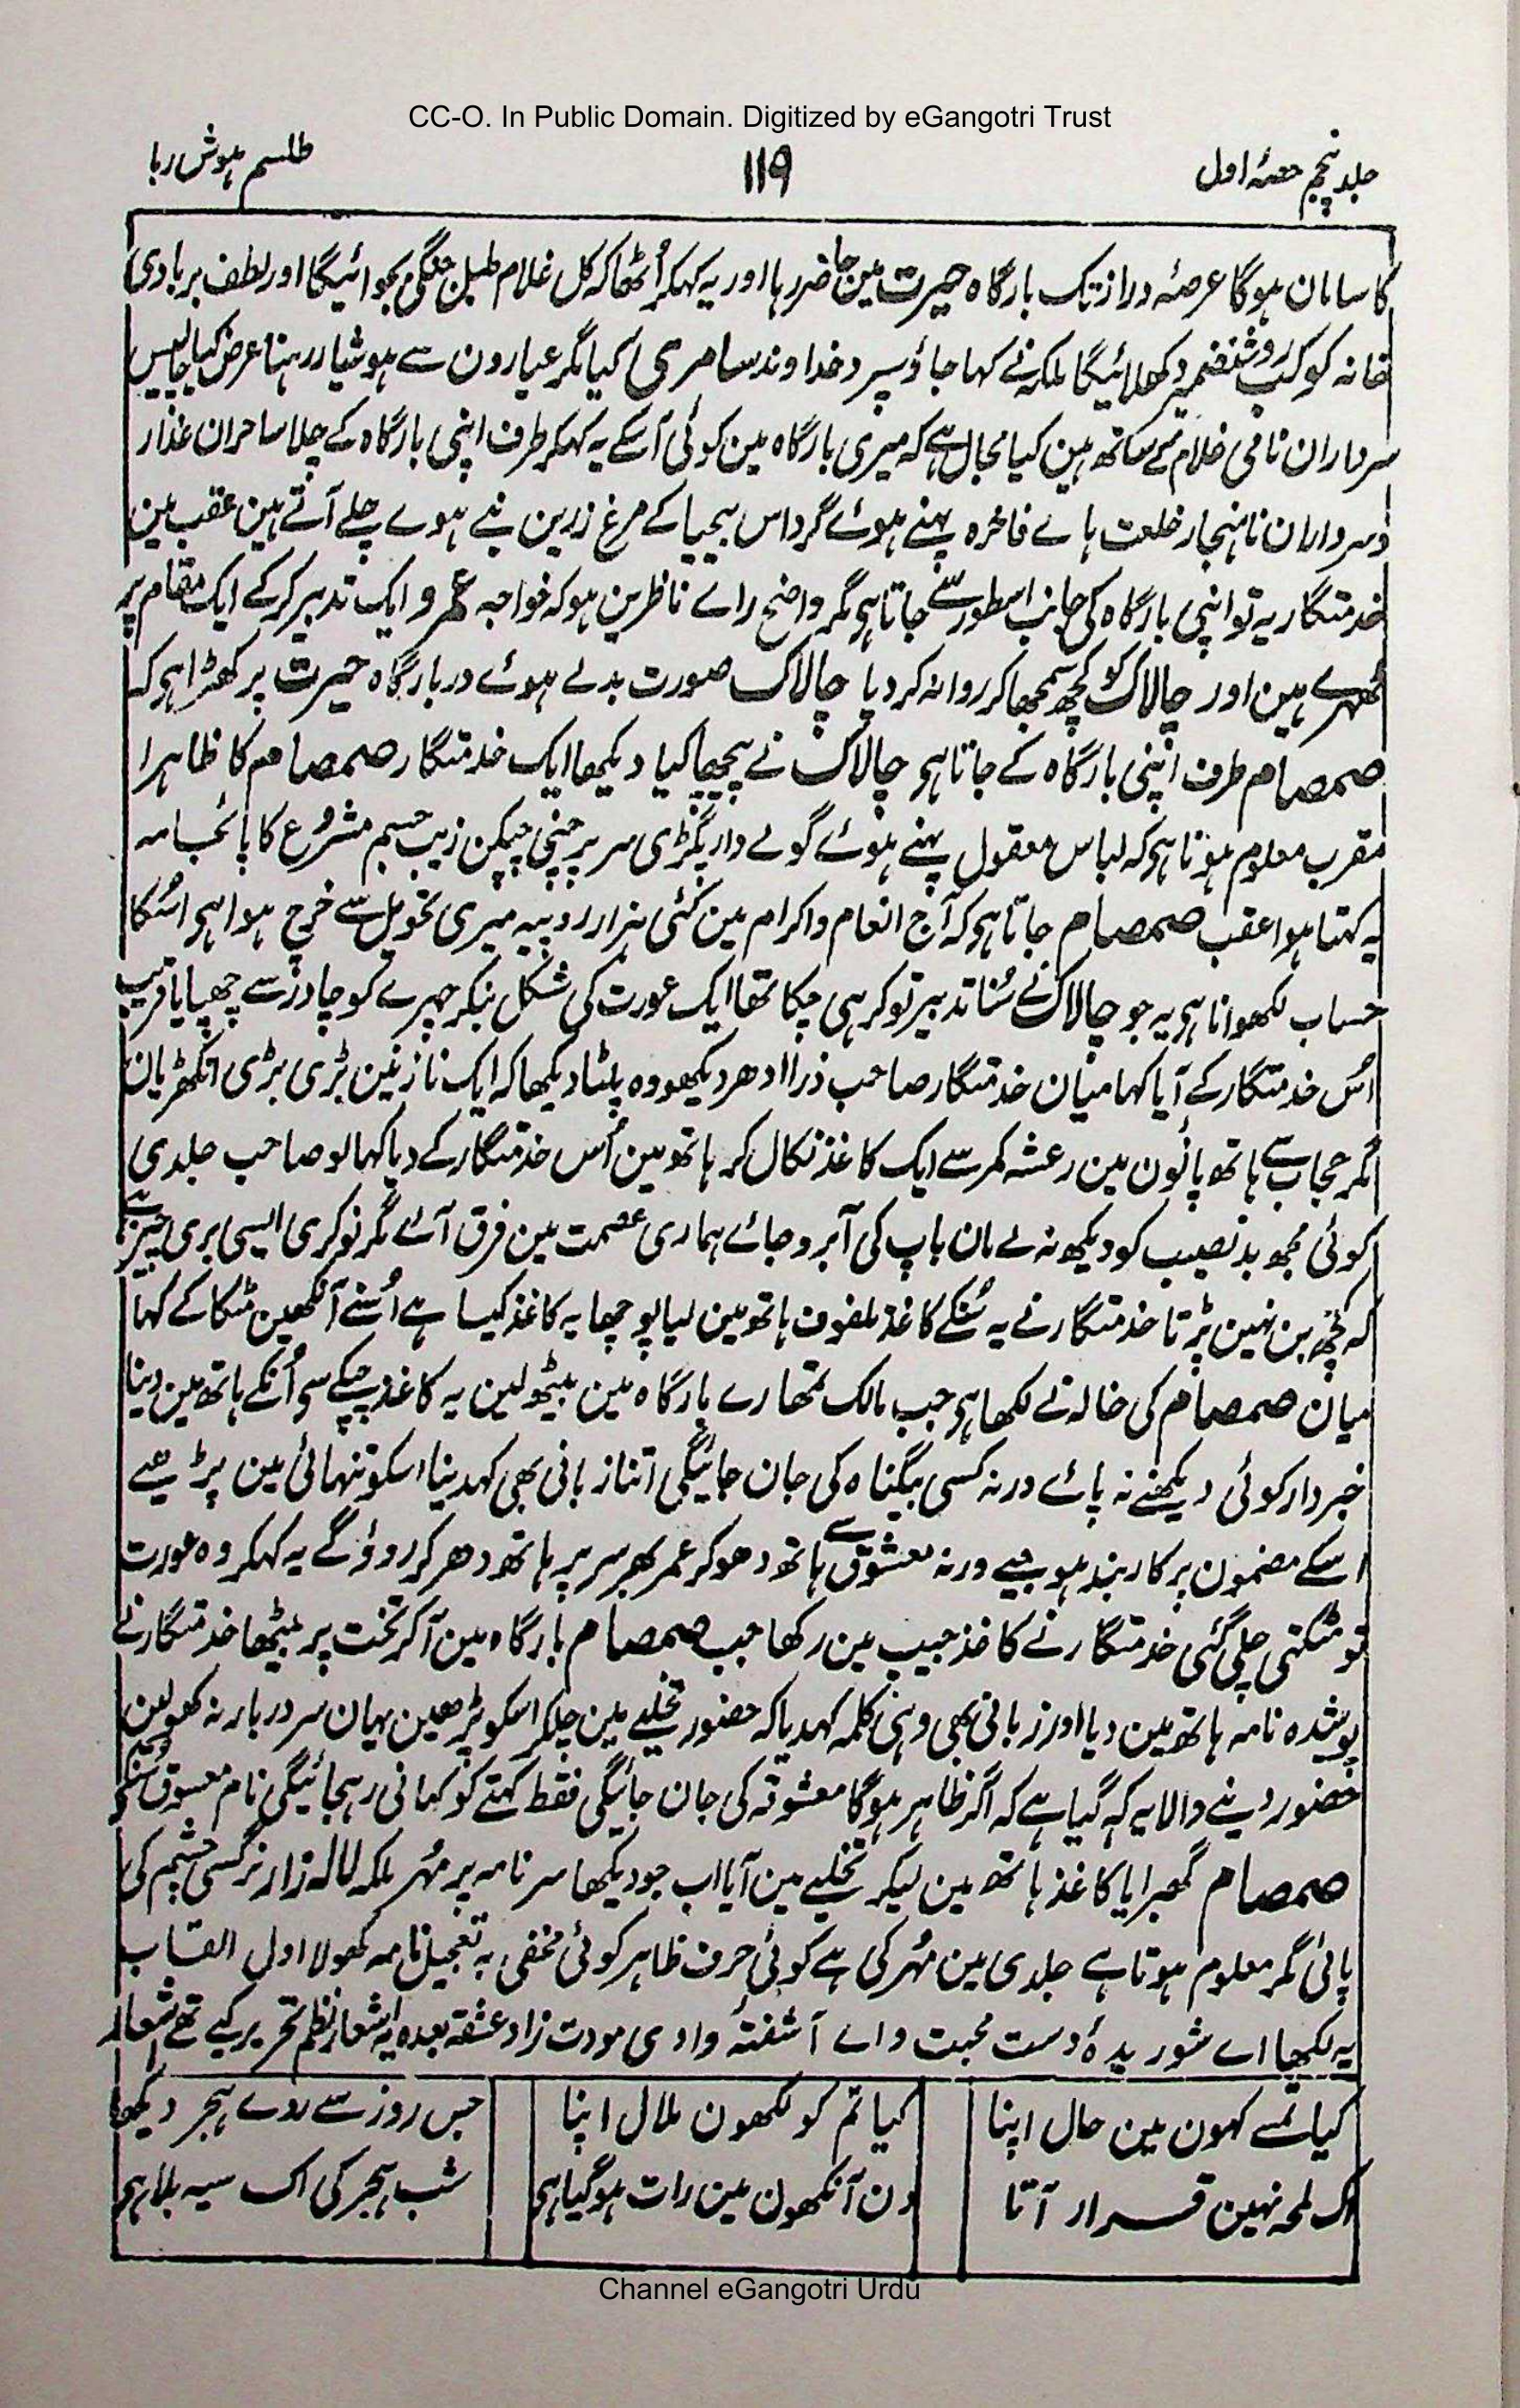 CC-O. In Public Domain. Digitized by eGangotri Trust
جلد پنجم حصۂ اول
۱۱۹
طلسم ہوش ربا
کا سامان ہوگا عرصۂ دراز تک بارگاہ حیرت مین حاضر رہا اور یہ کہکر اُٹھا کہ کل غلام طبل جنگی بجوائیگا اور لطف بربادی
خانہ کوکب روشنضمیر دکھلائیگا ملکہ نے کہا جاؤ سپرد خداوند سامری کیا مگر عیارون سے ہوشیار رہنا عرض کیا چالیس
سرداران نامی غلام کے ساتھ ہین کیا مجال ہے کہ میری بارگاہ مین کوئی آسکے یہ کہکر طرف اپنی بارگاہ کے چلا ساحران غدار
وسرداران ناہنجار خلعت ہاے فاخرہ پہنے ہوئے گرد اس بیحیا کے مرغ زرین بنے ہوے چلے آتے ہین عقب مین
خدمتگار یہ تو اپنی بارگاہ کی جانب اسطور سے جاتا ہی مگر واضح راے ناظرین ہو کہ خواجہ عمرو ایک تدبیر کرکے ایک مقام پر
ٹھہرے ہین اور چالاک کو کچھ سمجھا کر روانہ کردیا چالاک صورت بدلے ہوئے در بارگاہ حیرت پر کھڑا ہی کہ
صمصام طرف اپنی بارگاہ کے جاتا ہی چالاک نے پیچھا کیا دیکھا ایک خدمتگار صمصام کا ظاہرا
مقرب معلوم ہوتا ہی کہ لباس معقول پہنے ہوئے گولے دار پگڑی سر پر چپنی چپکن زیب جسم مشروع کا پائجامہ
یہ کہتا ہوا عقب صمصام جاتا ہی کہ آج انعام و اکرام مین کئی ہزار روپیہ میری تحویل سے خرچ ہوا ہی اسکا
حساب لکھوانا ہی یہ جو چالاک نے سُنا تدبیر تو کر ہی چکا تھا ایک عورت کی شکل بنکر چہرے کو چادر سے چھپایا قریب
اُس خدمتگار کے آیا کہا میان خدمتگار صاحب ذرا ادھر دیکھو وہ پلٹا دیکھا کہ ایک نازنین بڑی بڑی انکھڑیان
مگر حجاب سے ہاتھ پانون مین رعشہ کمر سے ایک کاغذ نکال کر ہاتھ مین اُس خدمتگار کے دیا کہا لو صاحب جلدی
کوئی مجھ بدنصیب کو دیکھ نہ لے مان باپ کی آبرو جاے ہماری عصمت مین فرق آے مگر نوکری ایسی بری چیز ہے
کہ کچھ بن نہین پڑتا خدمتگار نے یہ سُنکے کاغذ ملفوف ہاتھ مین لیا پوچھا یہ کاغذ کیسا ہے اُسنے آنکھین مٹکا کے کہا
میان صمصام کی خالہ نے لکھا ہی جب مالک تمھارے بارگاہ مین بیٹھ لین یہ کاغذ چپکے سے اُنکے ہاتھ مین دینا
خبردار کوئی دیکھنے نہ پاے ورنہ کسی بیگناہ کی جان جائیگی اتنا زبانی بھی کہدینا اسکو تنہائی مین پڑھیے
اسکے مضمون پر کاربند ہوجیے ورنہ معشوق سے ہاتھ دھوکر عمر بھر سر پر ہاتھ دھر کر روؤگے یہ کہکر وہ عورت
تو مٹکتی چلی گئی خدمتگار نے کاغذ جیب مین رکھا جب صمصام بارگاہ مین آکر تخت پر بیٹھا خدمتگار نے
پوشیدہ نامہ ہاتھ مین دیا اور زبانی بھی وہی کلمہ کہدیا کہ حضور تخلیے مین چلکر اسکو پڑھین یہان سر دربار نہ کھولین
حضور دینے والا یہ کہ گیا ہے کہ اگر ظاہر ہوگا معشوقہ کی جان جائیگی فقط کہنے کو کہانی رہجائیگی نام معشوق سُنکر
صمصام گھبرایا کاغذ ہاتھ مین لیکر تخلیے مین آیا اب جو دیکھا سر نامہ پر مُہر ملکہ لالہ زار نرگسی چشم کی
پائی مگر معلوم ہوتا ہے جلدی مین مُہر کی ہے کوئی حرف ظاہر کوئی مخفی بہ تعجیل نامہ کھولا اول القاب
یہ لکھا اے شوریدۂ دست محبت و اے آشفتۂ وادی مودت زاد عشقۃ بعدہ یہ اشعار نظم تحریر کیے تھے اشعار
کیا تمسے کہون مین حال اپنا کیا تم کو لکھون ملال اپنا جس روز سے روے ہجر دیکھا
اک لمحہ نہین قرار آتا دن آنکھون مین رات ہوگیا ہی شب ہجر کی اک سیہ بلا ہی
Channel eGangotri Urdu